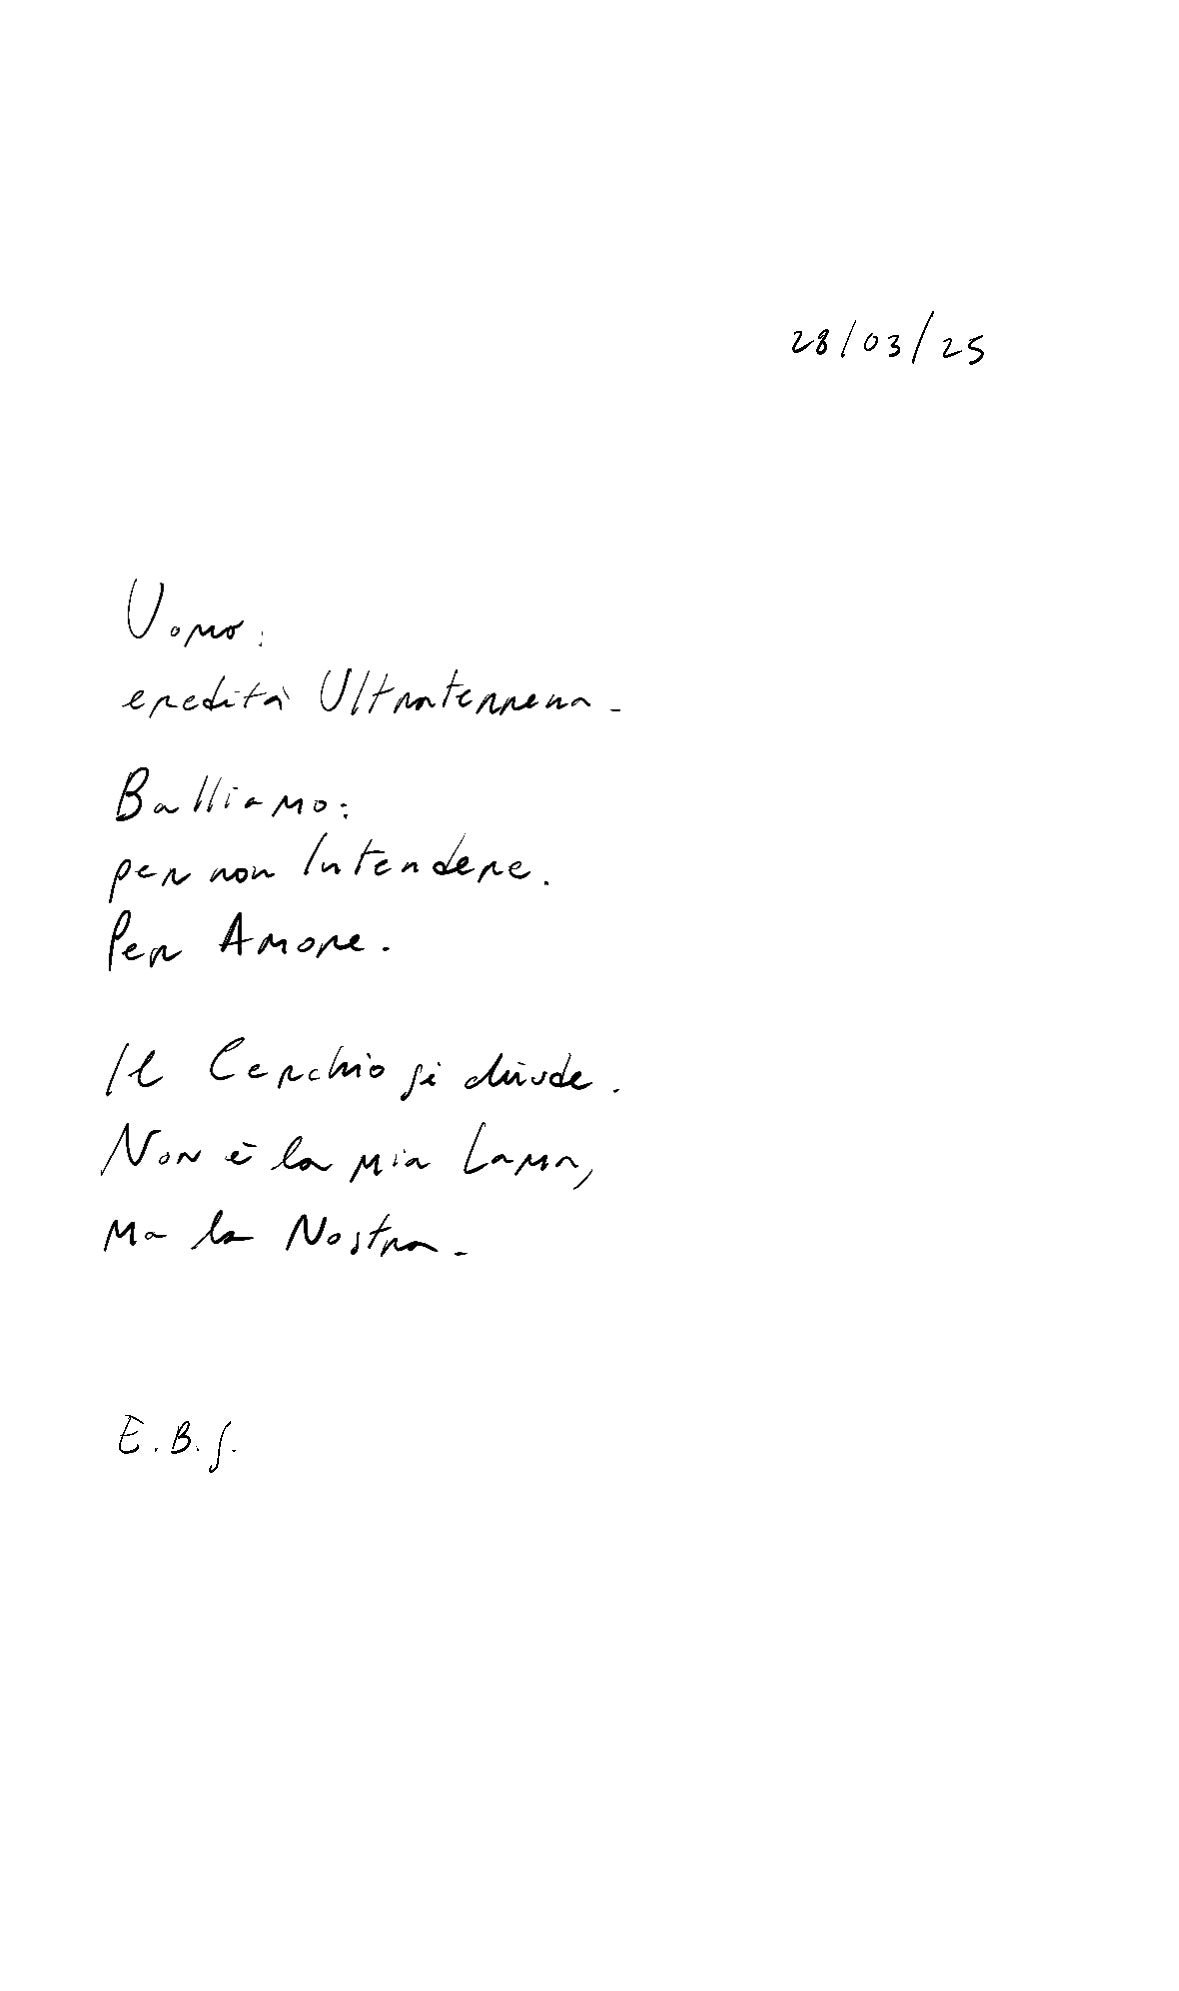 28/03/25
Uomo:
eredità Ultraterrena.
Balliamo:
per non Intendere.
Per Amore.
Il Cerchio si chiude.
Non è la mia Lama,
ma la Nostra.
E.B.S.